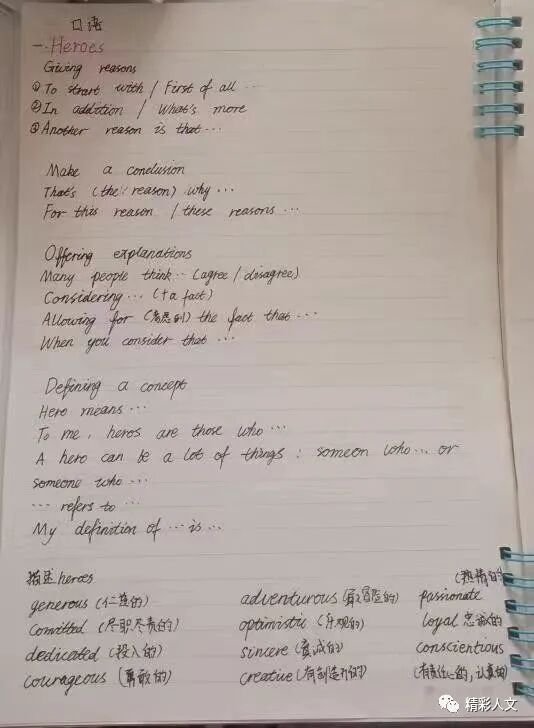 口语
一. Heroes
Giving reasons
①To start with / First of all …
②In addition / What's more
③Another reason is that …
Make a conclusion
That's (the reason) why …
For this reason / these reasons …
Offering explanations
Many people think … (agree / disagree)
Considering … (+a fact)
Allowing for (考虑到) the fact that …
When you consider that …
Defining a concept
Hero means …
To me, heros are those who …
A hero can be a lot of things : someon who … or
someone who …
… refers to …
My definition of … is …
描述heroes
generous (仁慈的) adventurous (敢冒险的) passionate (热情的)
Committed (尽职尽责的) optimistic (乐观的) loyal 忠诚的
dedicated (投入的) sincere (真诚的) conscientious
courageous (勇敢的) creative (有创造力的) (有责任心的,认真的)
精彩人文